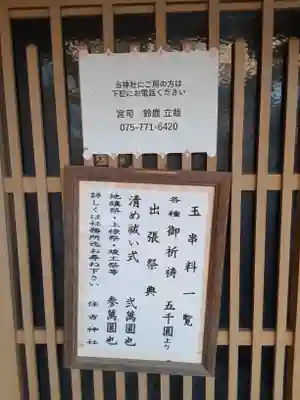 当神社にご用の方は
下記にお電話ください
宮司 鈴鹿 立哉
075-771-6420
玉串料一覧
各種 御祈祷 五千圓より
出張祭典
清め祓い式 弐萬圓也
地鎮祭・上棟祭・竣工祭等 参萬圓也
詳しくは社務所迄お尋ね下さい 住吉神社